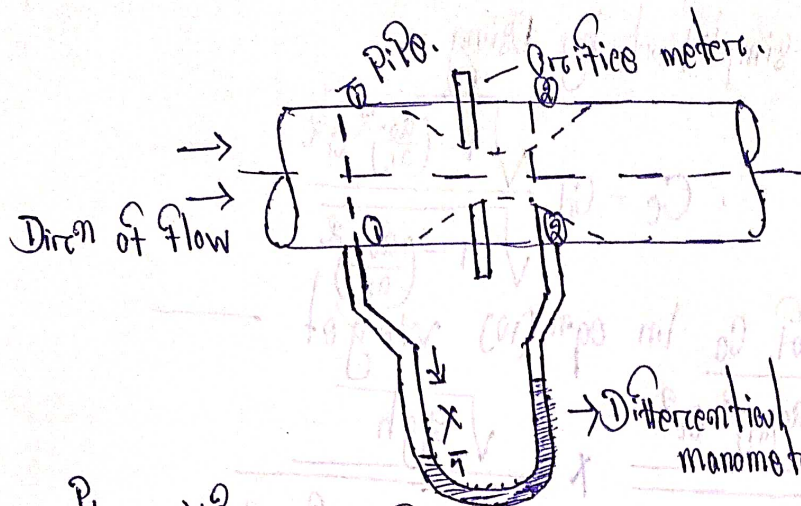 ① Pipe. Orcifice meterc. ②
Dircn of flow ① ②
X
→ Differcential
manomet
P₁